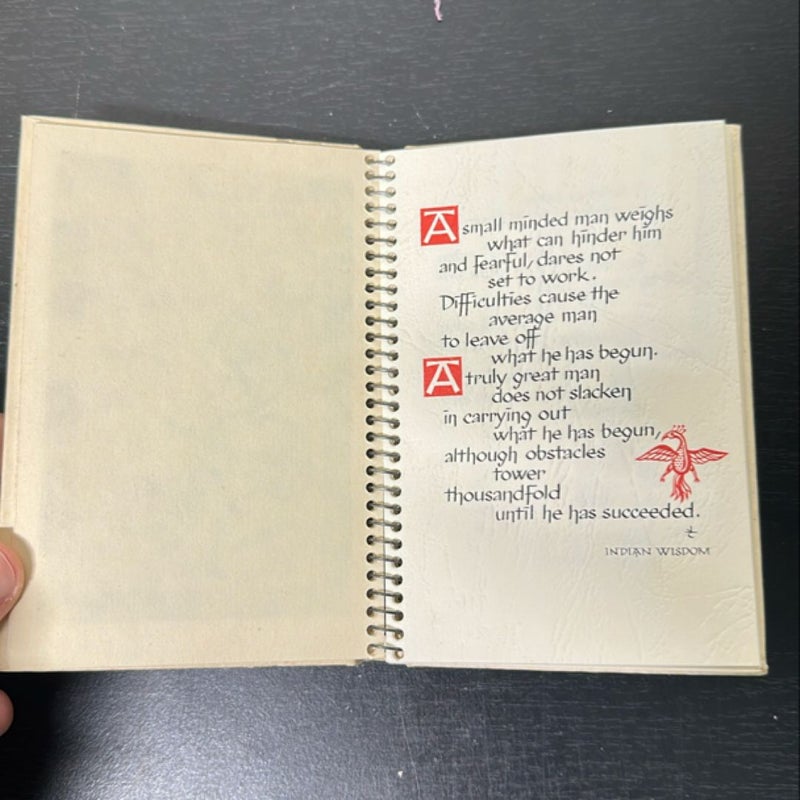 A small minded man weighs
what can hinder him
and fearful, dares not
set to work.
Difficulties cause the
average man
to leave off
what he has begun.
A truly great man
does not slacken
in carrying out
what he has begun,
although obstacles
tower
thousandfold
until he has succeeded.
INDIAN WISDOM